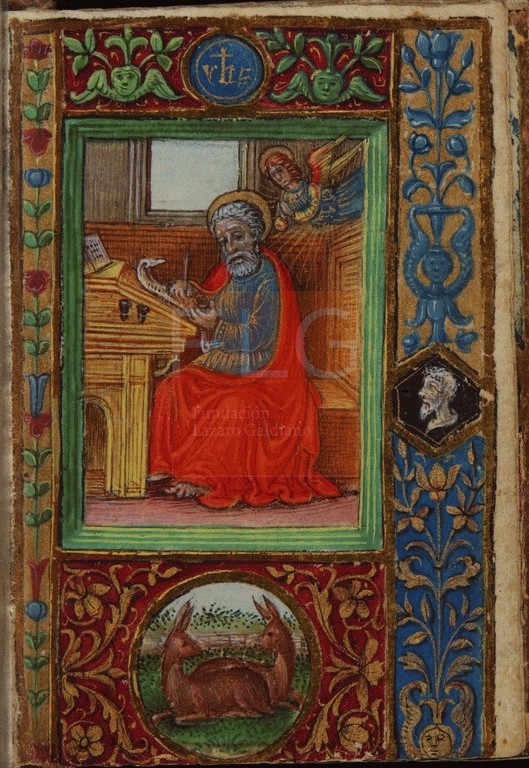 yhs
FLG
Fundación
Lázaro Galdiano